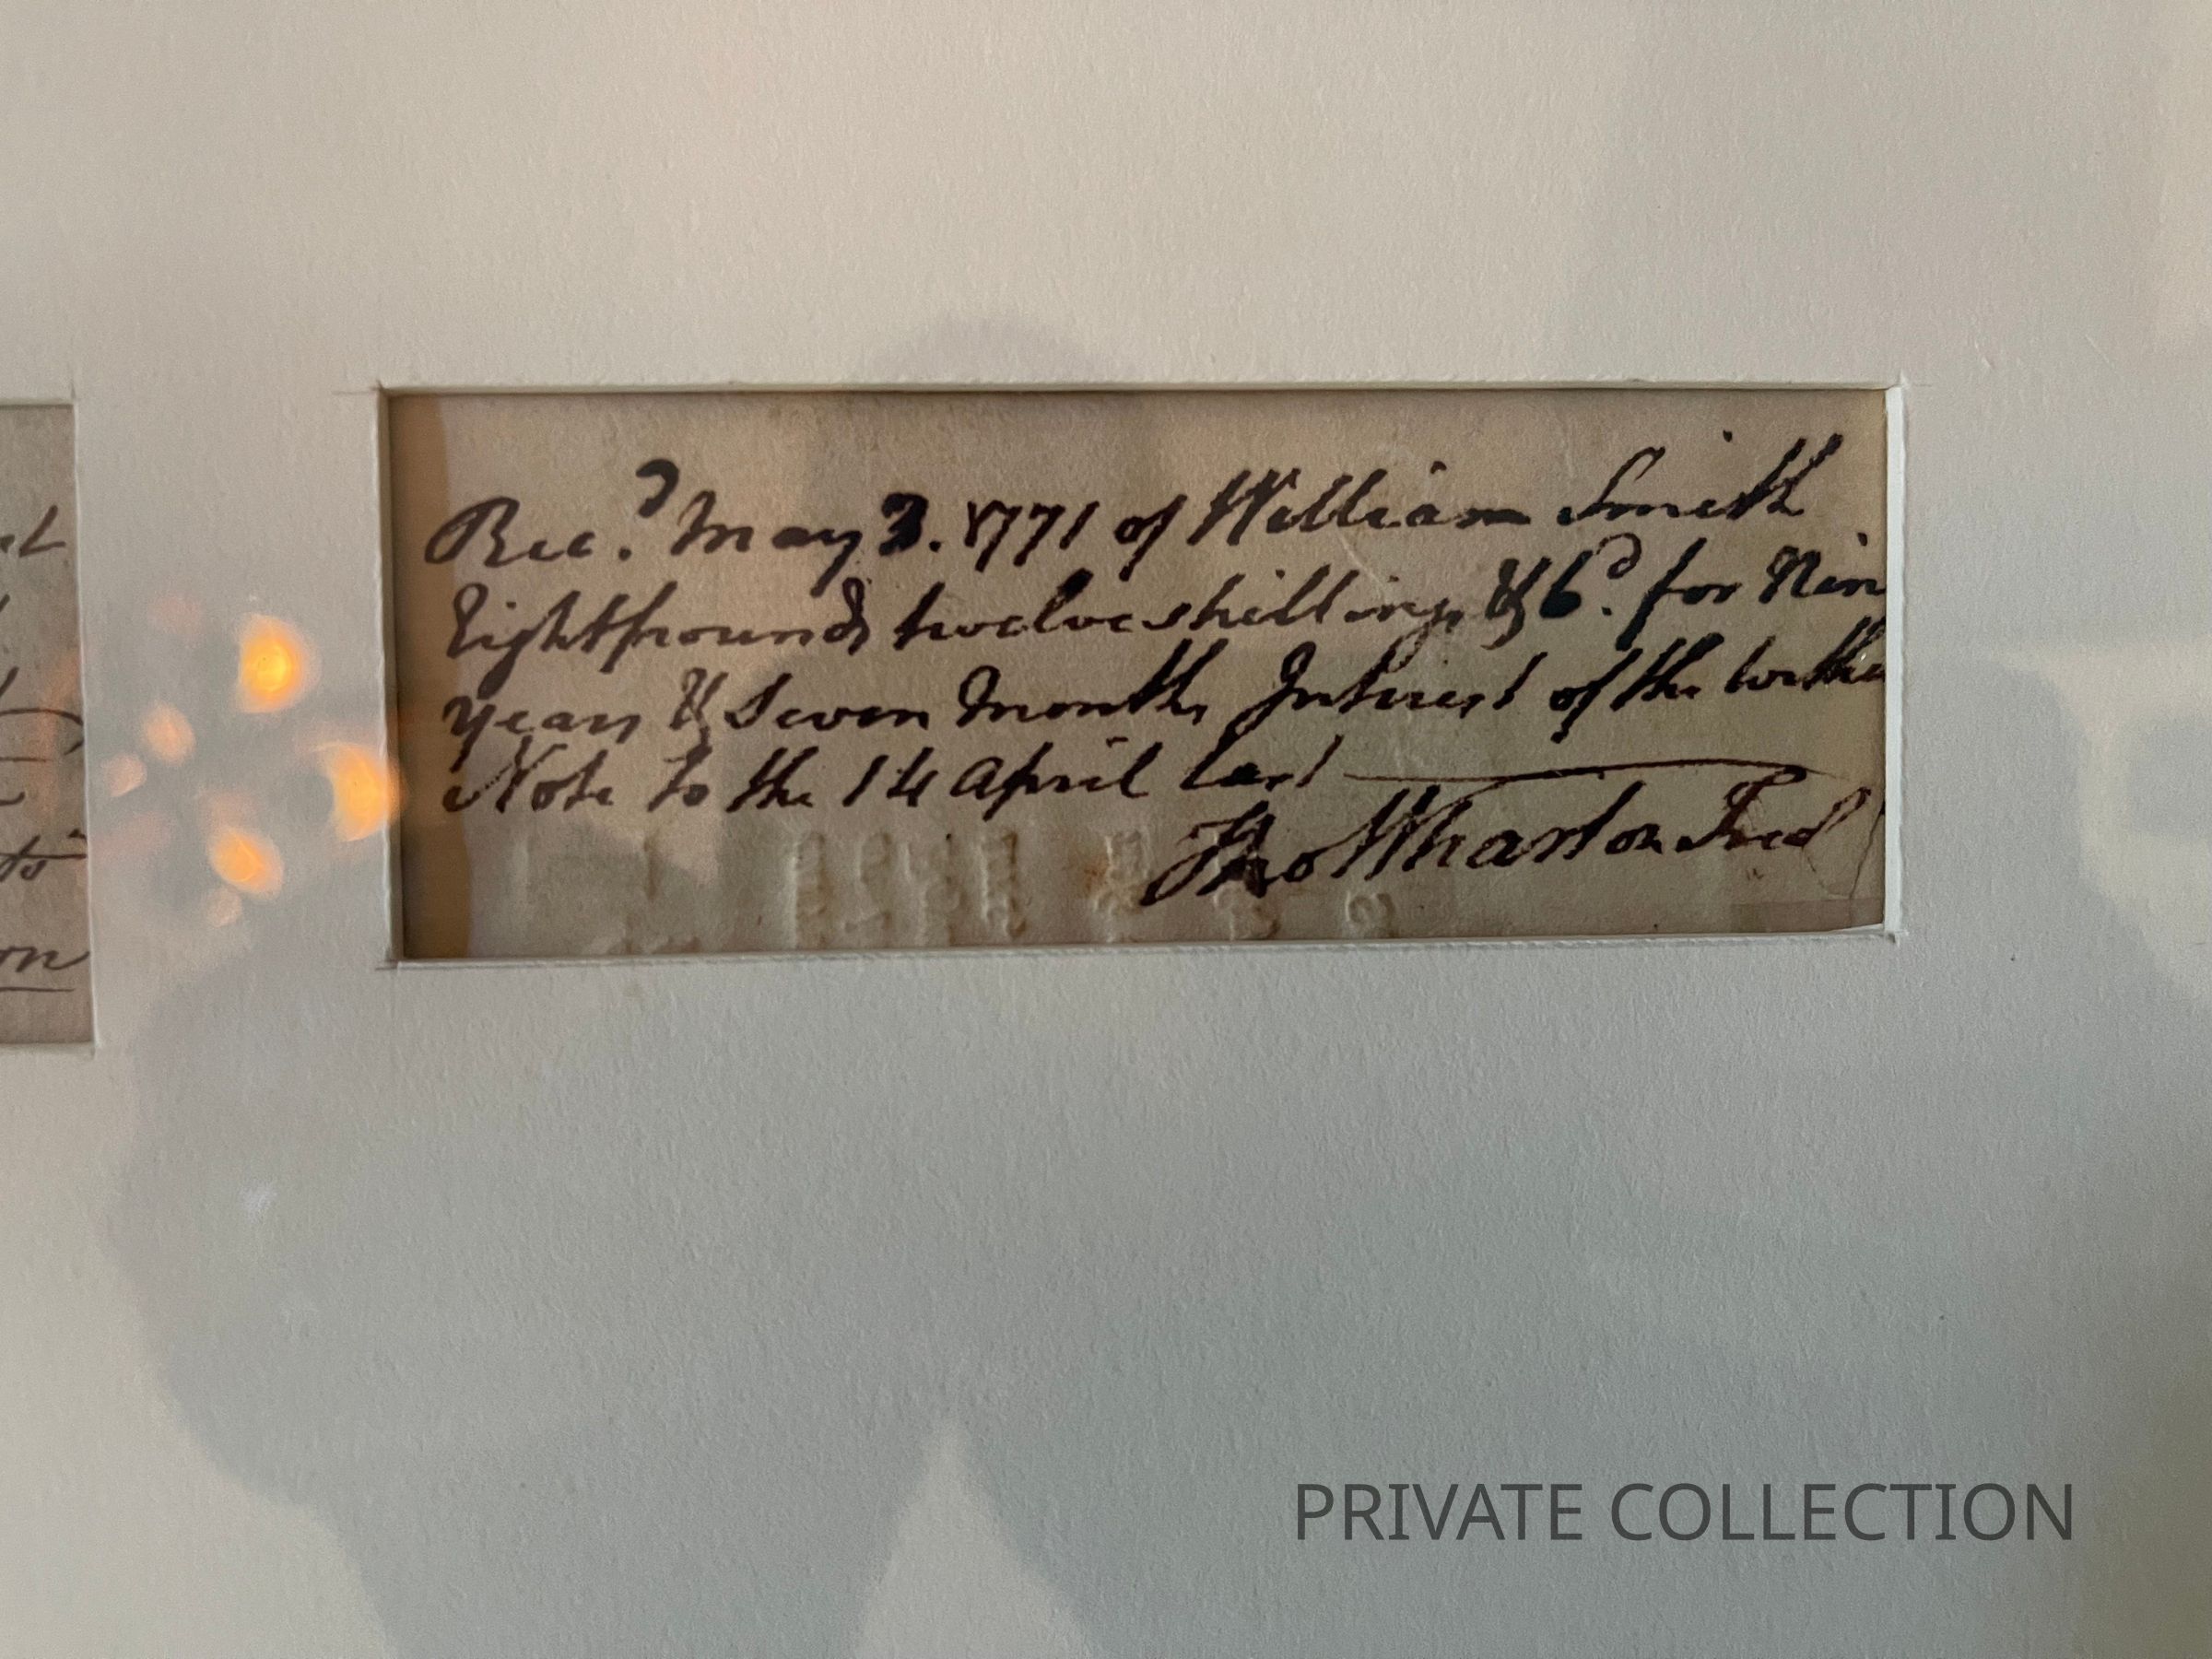 Rec.d May 3. 1771 of William Smith
Eight pounds twelve shillings & 6.d for Nin
years & Seven Months Interest of the withi
Note to the 14 April last
Tho Wharton
PRIVATE COLLECTION